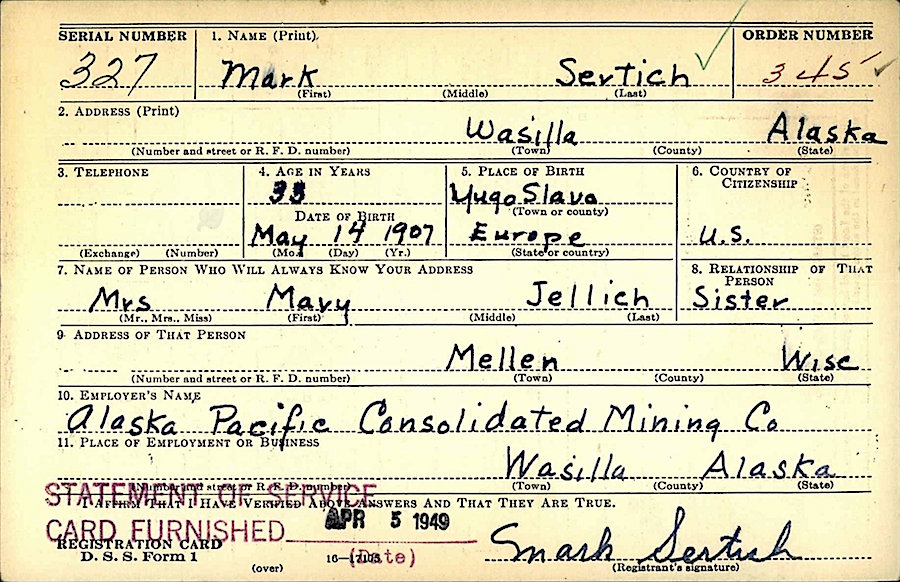 SERIAL NUMBER 1. NAME (Print) ORDER NUMBER
327 Mark Sertich 345
(First) (Middle) (Last)
2. ADDRESS (Print)
Wasilla Alaska
(Number and street or R. F. D. number) (Town) (County) (State)
3. TELEPHONE 4. AGE IN YEARS 5. PLACE OF BIRTH 6. COUNTRY OF CITIZENSHIP
33 Yugo Slava
DATE OF BIRTH (Town or county)
May 14 1907 Europe U.S.
(Exchange) (Number) (Mo.) (Day) (Yr.) (State or country)
7. NAME OF PERSON WHO WILL ALWAYS KNOW YOUR ADDRESS 8. RELATIONSHIP OF THAT PERSON
Mrs Mary Jellich Sister
(Mr., Mrs., Miss) (First) (Middle) (Last)
9. ADDRESS OF THAT PERSON
Mellen Wisc
(Number and street or R. F. D. number) (Town) (County) (State)
10. EMPLOYER'S NAME
Alaska Pacific Consolidated Mining Co
11. PLACE OF EMPLOYMENT OR BUSINESS
Wasilla Alaska
(Number and street or R. F. D. number) (Town) (County) (State)
STATEMENT OF SERVICE
I AFFIRM THAT I HAVE VERIFIED ABOVE ANSWERS AND THAT THEY ARE TRUE.
CARD FURNISHED APR 5 1949
REGISTRATION CARD Mark Sertich
D. S. S. Form 1 (Date)
(over) (Registrant's signature)